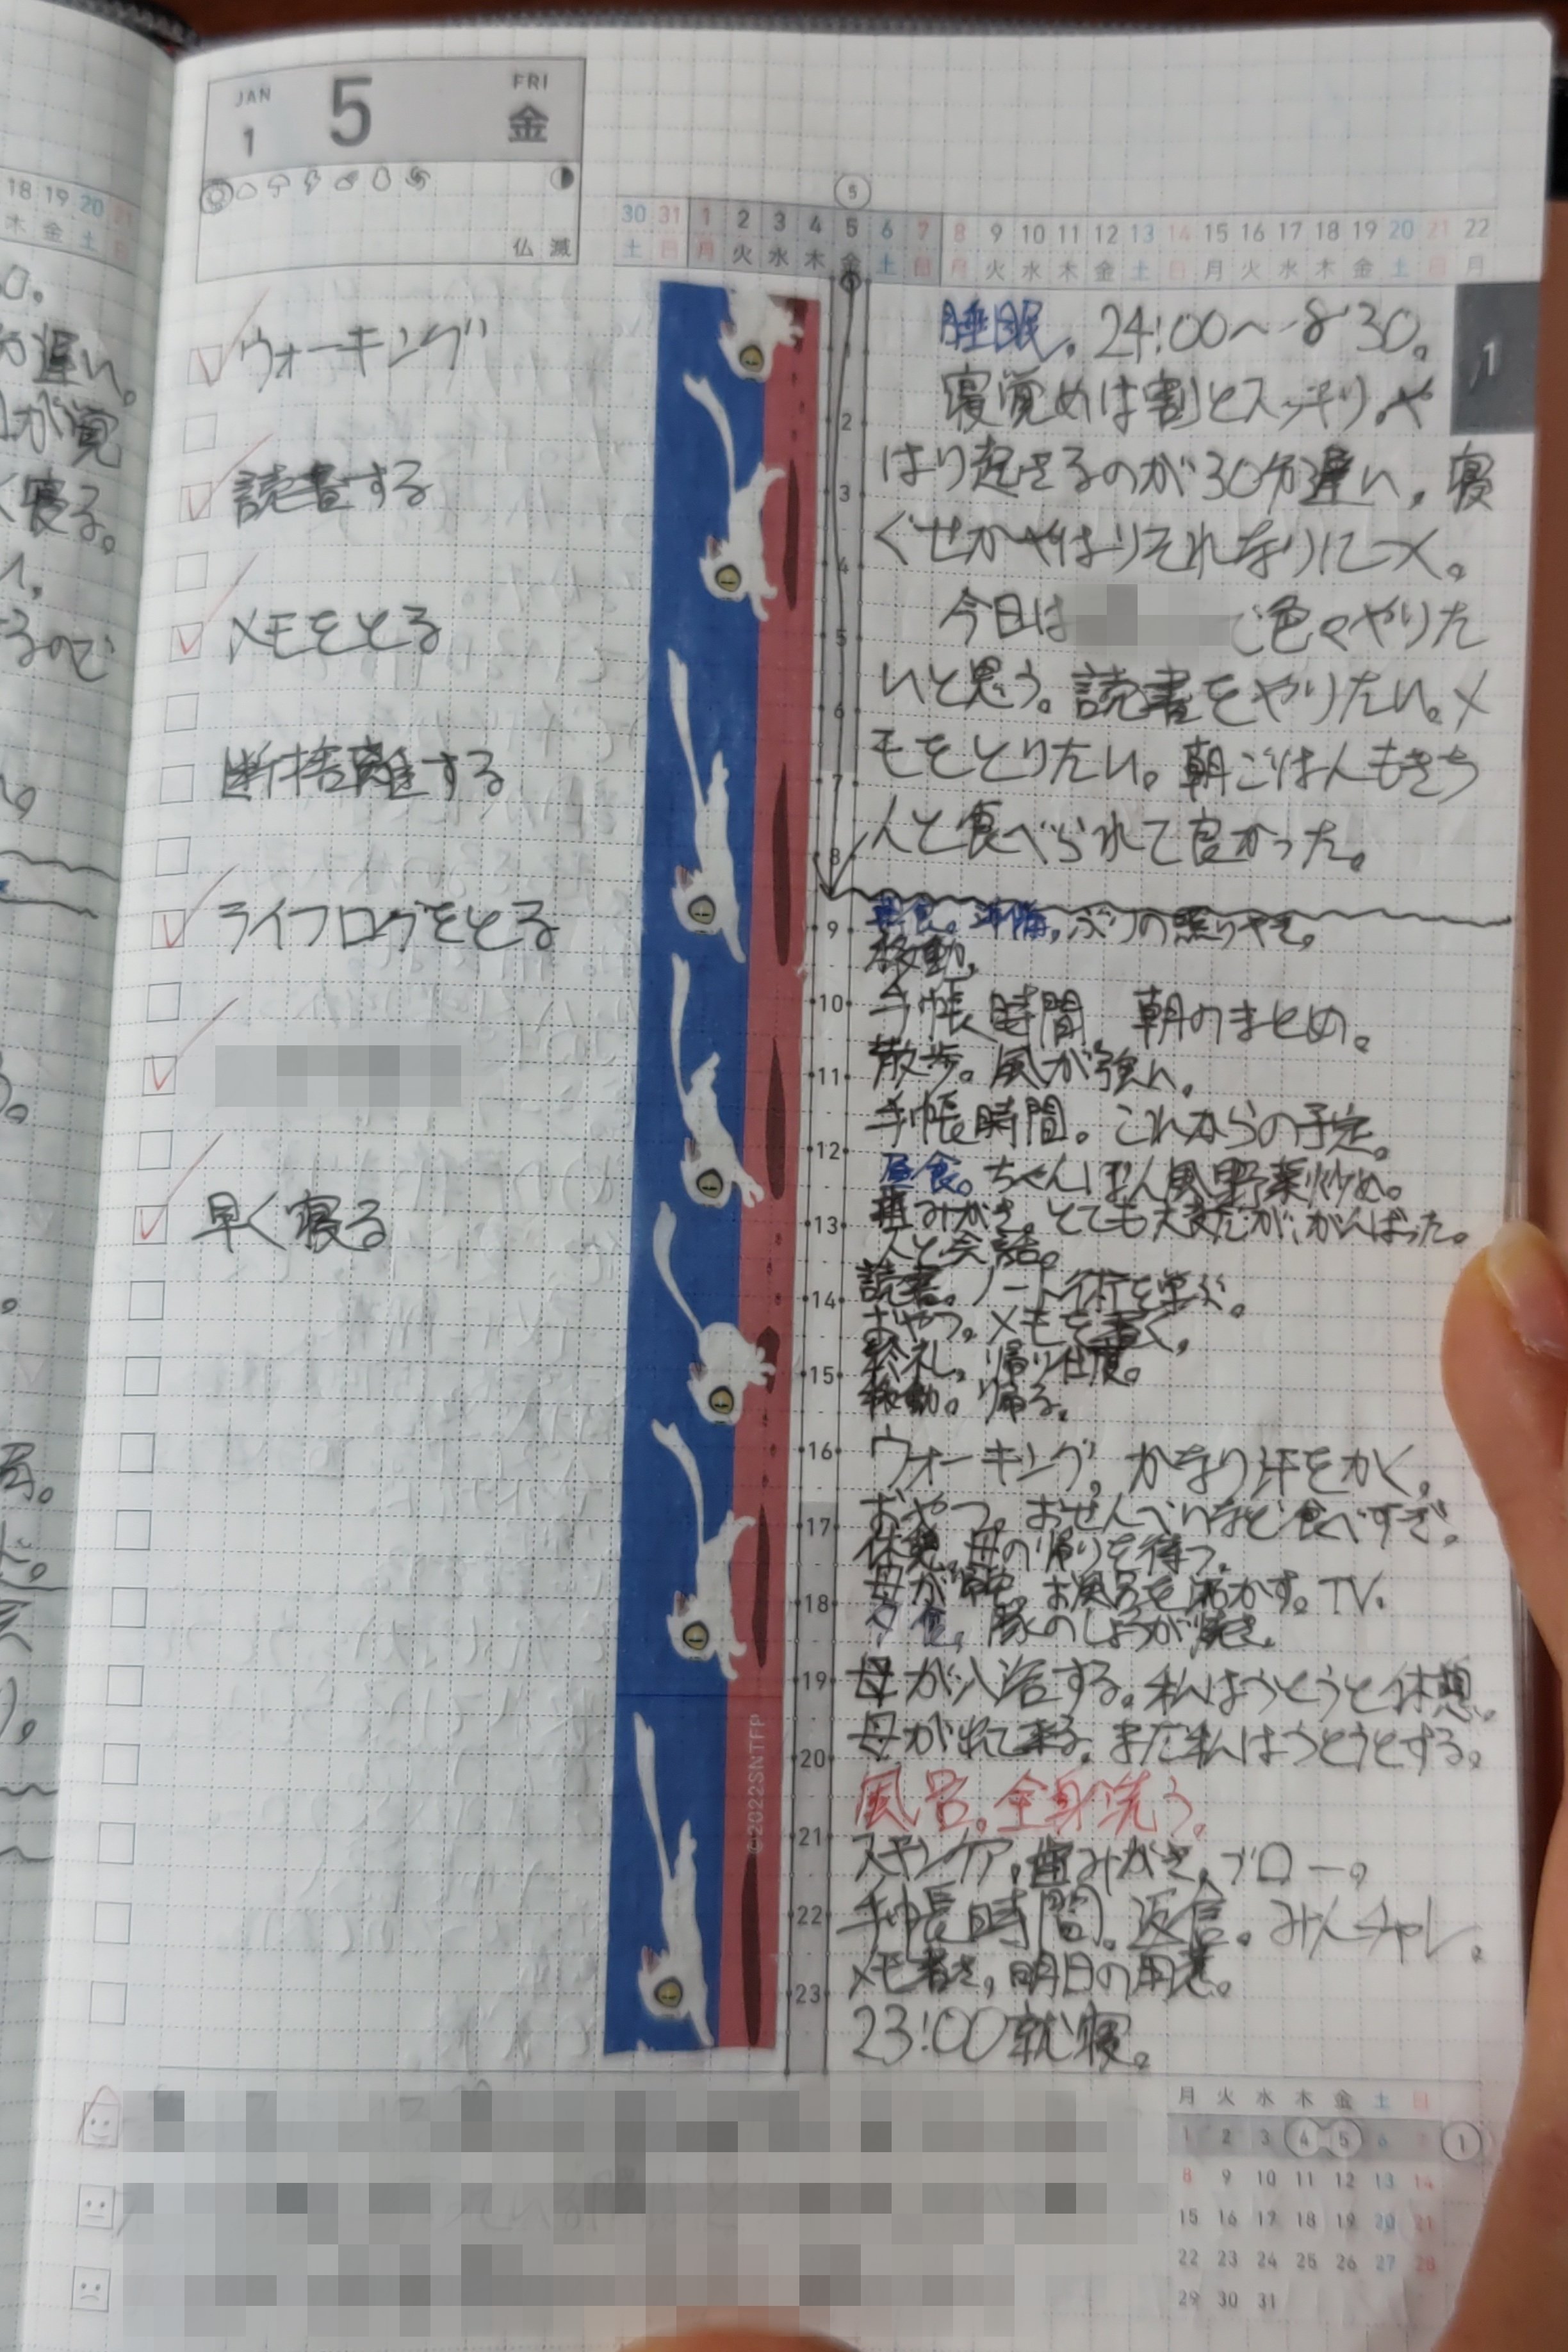 JAN
1
5
FRI
金
仏滅
5
30 31 1 2 3 4 5 6 7 8 9 10 11 12 13 14 15 16 17 18 19 20 21 22
土 日 月 火 水 木 金 土 日 月 火 水 木 金 土 日 月 火 水 木 金 土 日 月
18 19 20 21
木 金 土 日
1
ウォーキング
読書する
メモをとる
断捨離する
ライフログをとる
早く寝る
睡眠。24:00〜8:30。
寝覚めは割とスッキリ。や
はり起きるのが30分遅い。寝
ぐせがやはりそれなりにつく。
今日は
で色々やりた
いと思う。読書をやりたい。メ
モをとりたい。朝ごはんもきち
んと食べられて良かった。
1
2
3
4
5
6
7
8
9
10
11
12
13
14
15
16
17
18
19
20
21
22
23
朝食。準備。ぶりの照りやき。
移動。
手帳時間 朝のまとめ。
散歩。風が強い。
手帳時間。これからの予定。
昼食。ちゃんぽん風野菜炒め。
歯みがき。とても大変だが、がんばった。
人と会話。
読書。ノート術を学ぶ。
おやつ。メモを書く。
終礼。帰り仕度。
移動。帰る。
ウォーキング。かなり汗をかく。
おやつ。おせんべいなど食べすぎ。
休憩。母の帰りを待つ。
母が帰宅。お風呂を沸かす。TV.
夕食。豚のしょうが焼き。
母が入浴する。私はうとうと休憩。
母が出て来る。まだ私はうとうとする。
風呂。全身洗う。
スキンケア。歯みがき。ブロー。
手帳時間。返信。みんチャレ。
メモ書き。明日の用意。
23:00就寝。
©2022SNTFP
月 火 水 木 金 土 日
1 2 3 4 5 6 7 1
8 9 10 11 12 13 14
15 16 17 18 19 20 21
22 23 24 25 26 27 28
29 30 31